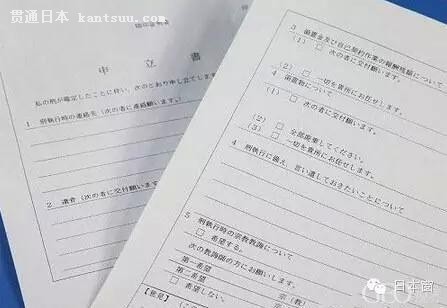 贯通日本 kantsuu.com
申 立 書
私の刑が確定したことに伴い、次のとおり申し立てします
1 刑執行時の連絡先(次の者に連絡願います
2 遺骨(次の者に交付願います
3 領置金及び自己契約作業の報酬残額について
(1) □ 次の者に交付願います。
(2) □ 一切を貴所にお任せします。
4 領置物について
(1) □ 次の者に交付願います。
(2) □ 全部廃棄してください。
(3) □ 一切を貴所にお任せします。
4 刑執行に備え、言い遺しておきたいことについて
5 刑執行時の宗教教誨について
□ 希望する。
次の教誨師の方にお願いします。
第一希望 宗(教)
第二希望 宗
□ 希望しない。
【意見】
日本窗